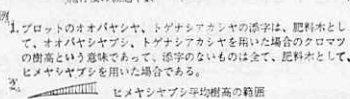 例
1. プロットのオオバヤシヤ、トゲナシアカシヤの添字は、肥料木とし
て、オオバヤシヤブシ、トゲナシアカシヤを用いた場合のクロマツ
の樹高という意味であって、添字のないものは全て、肥料木として、
ヒメヤシヤブシを用いた場合である。
2.
ヒメヤシヤブシ平均樹高の範囲